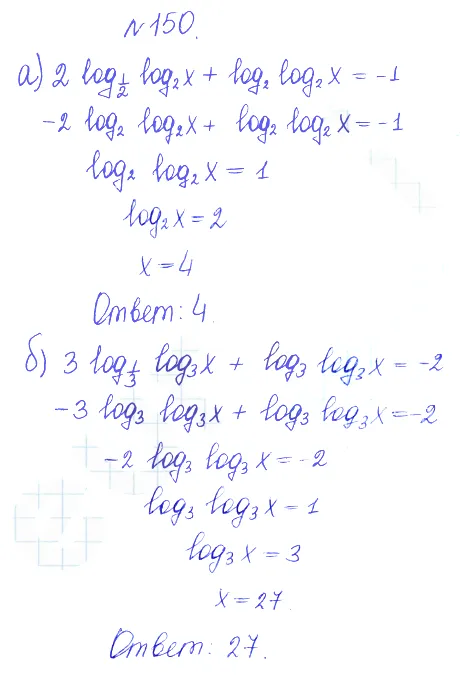 №150.
а) 2 log_{1/2} log₂x + log₂ log₂x = -1
-2 log₂ log₂x + log₂ log₂x = -1
log₂ log₂x = 1
log₂x = 2
x = 4
Ответ: 4.
б) 3 log_{1/3} log₃x + log₃ log₃x = -2
-3 log₃ log₃x + log₃ log₃x = -2
-2 log₃ log₃x = -2
log₃ log₃x = 1
log₃x = 3
x = 27.
Ответ: 27.